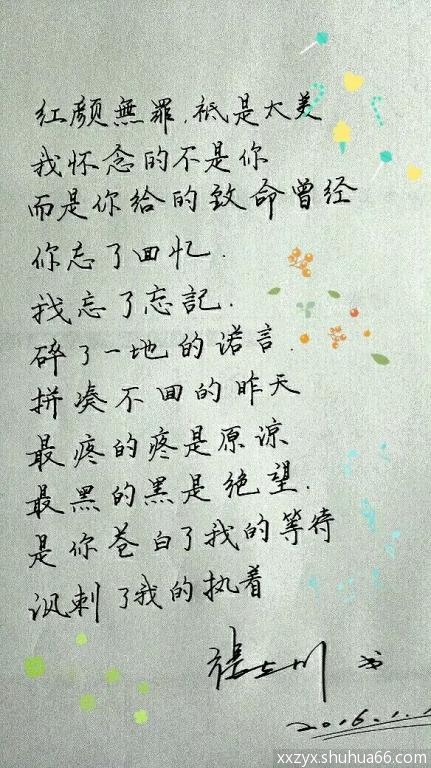 红颜無罪,祇是太美
我怀念的不是你
而是你给的致命曾经
你忘了回忆.
我忘了忘記.
碎了一地的诺言.
拼凑不回的昨天
最疼的疼是原谅
最黑的黑是绝望.
是你苍白了我的等待
讽刺了我的执着
書
2016.1.1
xxzyx.shuhua66.com